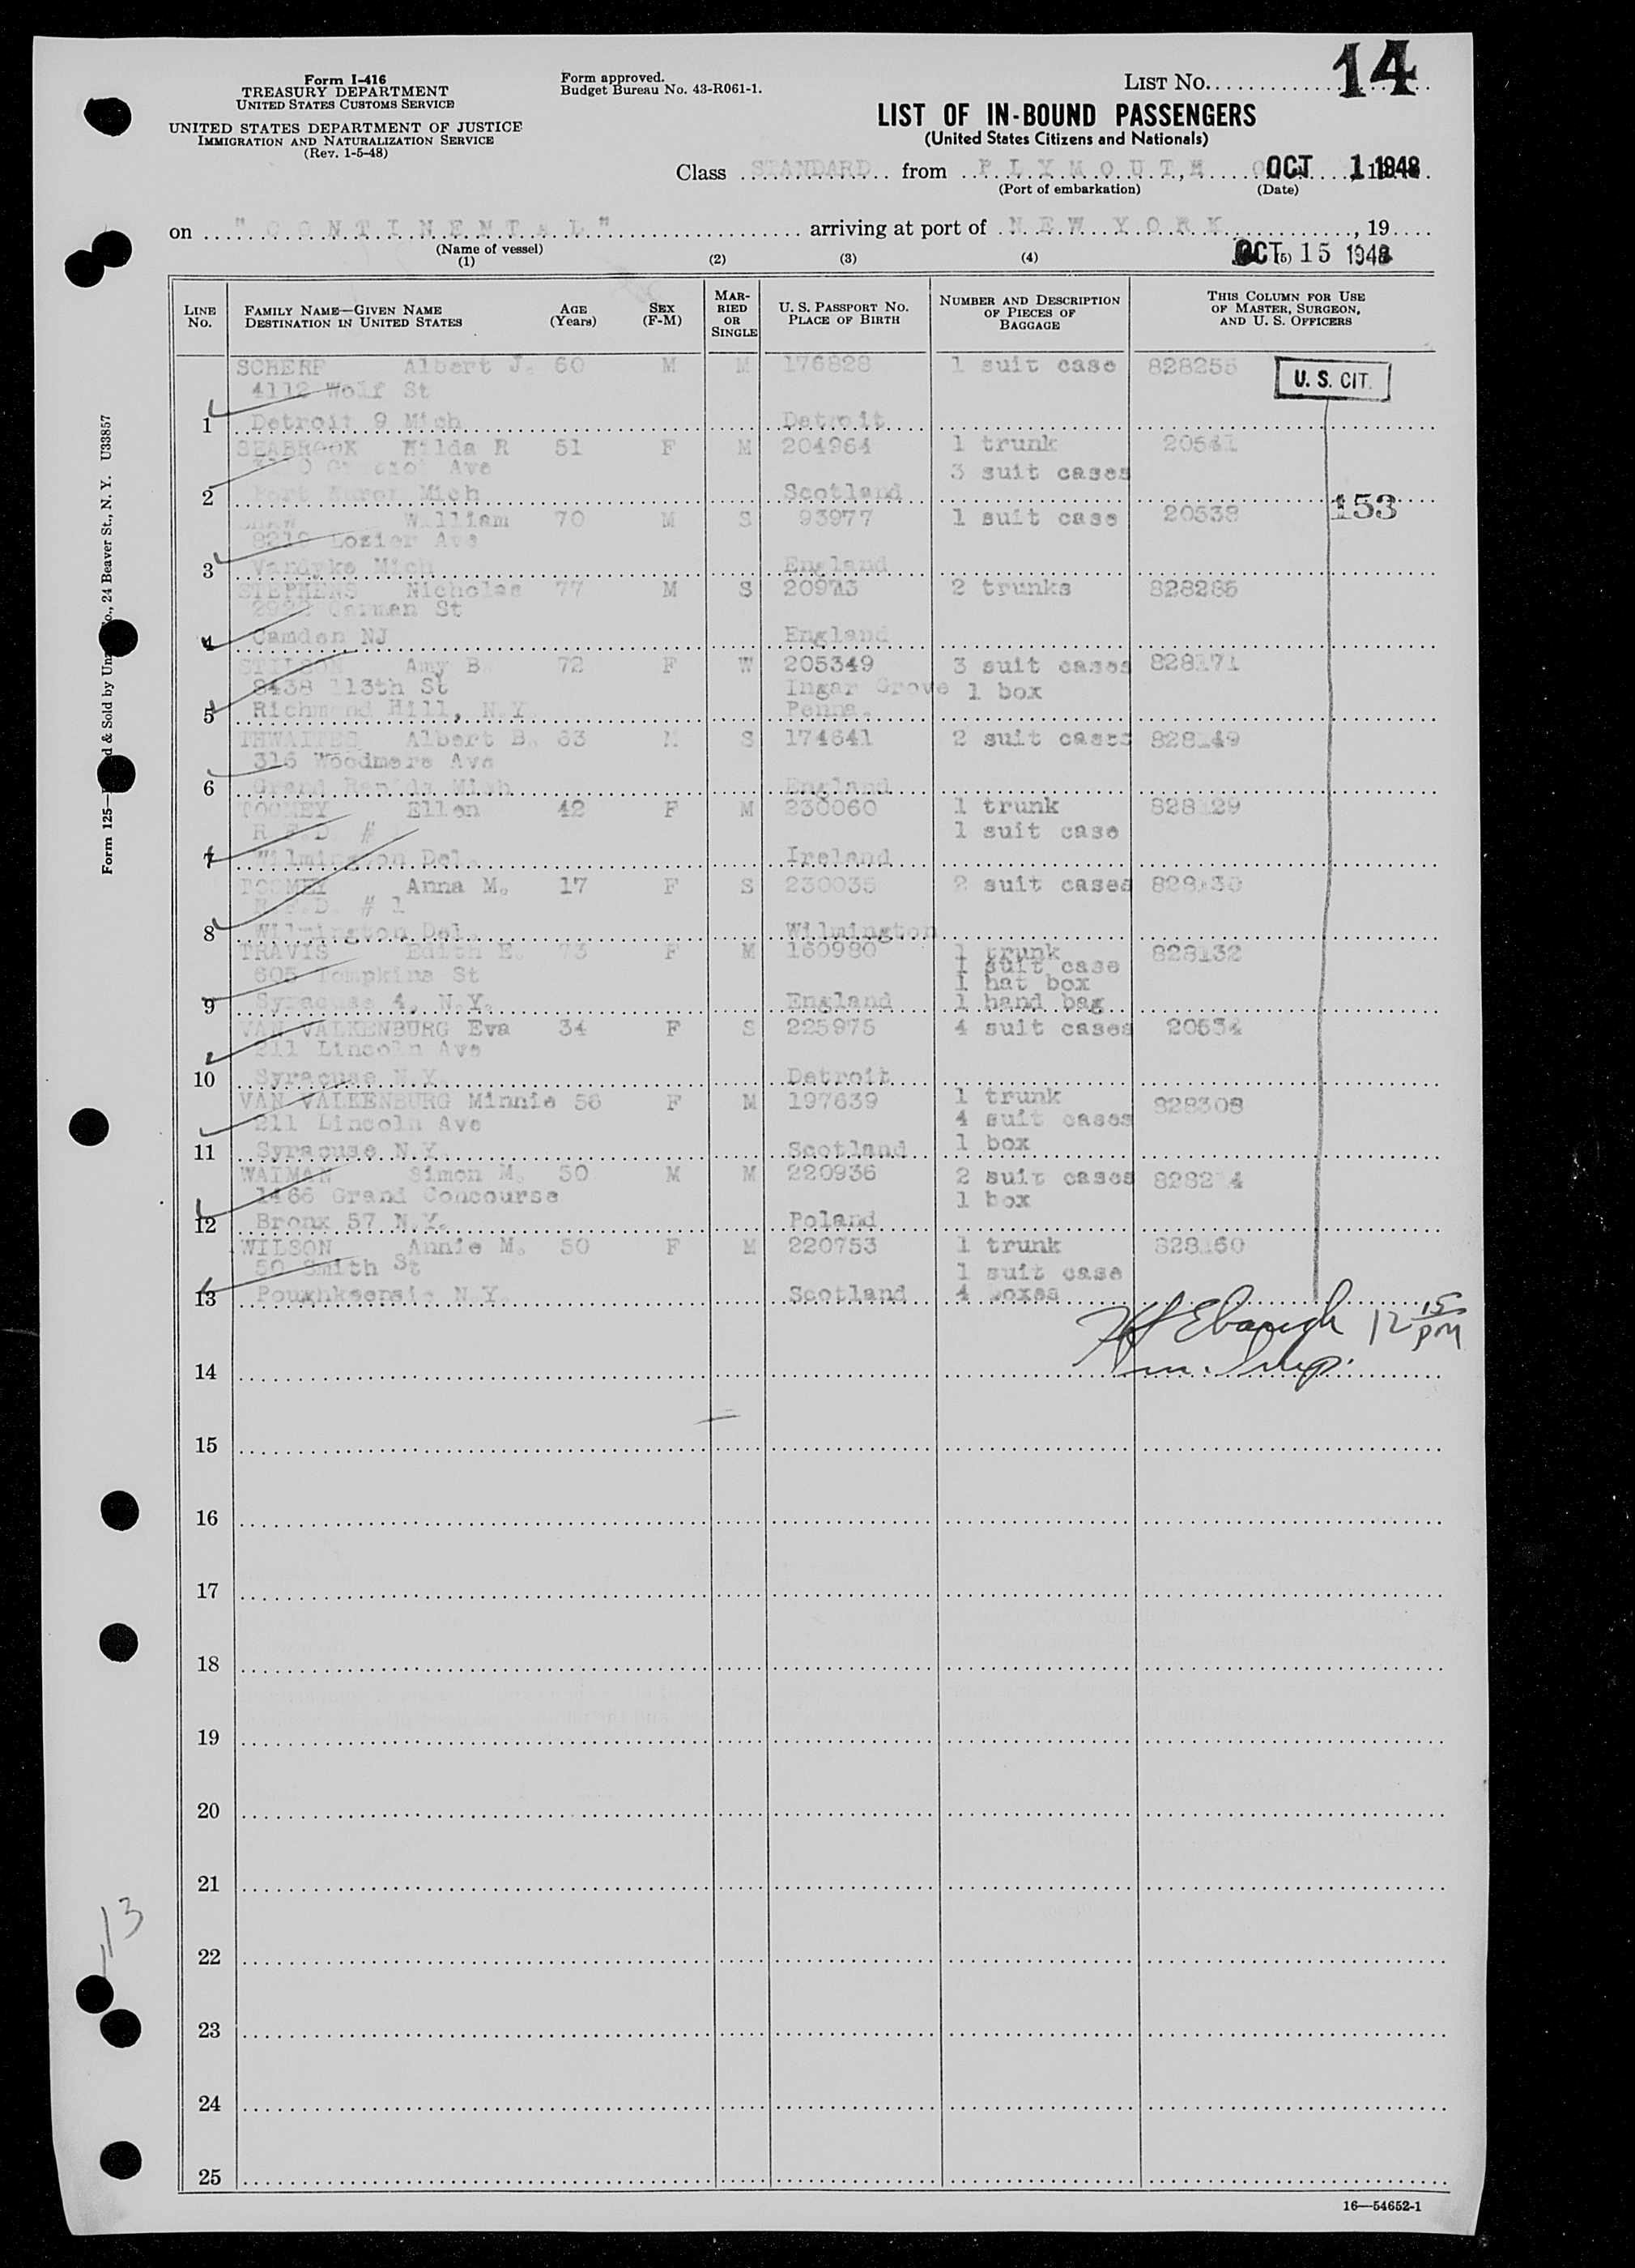 Form I-416
TREASURY DEPARTMENT
UNITED STATES CUSTOMS SERVICE
UNITED STATES DEPARTMENT OF JUSTICE
IMMIGRATION AND NATURALIZATION SERVICE
(Rev. 1-5-48)
Form approved.
Budget Bureau No. 43-R061-1.
LIST NO. 14
LIST OF IN-BOUND PASSENGERS
(United States Citizens and Nationals)
Class STANDARD from PLYMOUTH, OCT 1 1948
(Port of embarkation) (Date)
on "CONTINENTAL" arriving at port of NEW YORK, 19
(Name of vessel)
OCT 15 1948
(1) (2) (3) (4) (5)
LINE NO.
FAMILY NAME—GIVEN NAME
DESTINATION IN UNITED STATES
AGE (Years)
SEX (F-M)
MARRIED OR SINGLE
U. S. PASSPORT NO.
PLACE OF BIRTH
NUMBER AND DESCRIPTION OF PIECES OF BAGGAGE
THIS COLUMN FOR USE OF MASTER, SURGEON, AND U. S. OFFICERS
SCHERP Albert J. 60 M M 176828 1 suit case 828255
U. S. CIT.
4112 Wolf St
1 Detroit 9 Mich Detroit
SEABROOK Hilda R 51 F M 204964 1 trunk 20541
Ave 3 suit cases
2 Port Huron Mich Scotland
153
William 70 M S 93977 1 suit case 20538
8210 Lozier Ave
3 Vandyke Mich England
STEPHENS Nicholas 77 M S 20973 2 trunks 828286
2922 Carman St
4 Camden NJ England
STILSON Amy B. 72 F W 205349 3 suit cases 828171
8438 113th St Ingar Grove 1 box
5 Richmond Hill, N.Y. Penna.
THWAITES Albert B. 63 M S 174641 2 suit cases 828149
316 Woodmere Ave
6 Grand Rapids Mich England
TOOMEY Ellen 42 F M 230060 1 trunk 828129
R.F.D. # 1 suit case
7 Wilmington Del. Ireland
TOOMEY Anna M. 17 F S 230035 2 suit cases 828130
R.F.D. # 1
8 Wilmington Del. Wilmington
TRAVIS Edith E. 73 F M 160980 1 trunk 828132
1 suit case
605 Tompkins St 1 hat box
9 Syracuse 4, N.Y. England 1 hand bag
VAN VALKENBURG Eva 34 F S 225975 4 suit cases 20534
211 Lincoln Ave
10 Syracuse N.Y. Detroit
VAN VALKENBURG Minnie 56 F M 197639 1 trunk 828308
211 Lincoln Ave 4 suit cases
11 Syracuse N.Y. Scotland 1 box
WAIMAN Simon M. 50 M M 220936 2 suit cases
1466 Grand Concourse 1 box
12 Bronx 57 N.Y. Poland
WILSON Annie M. 50 F M 220753 1 trunk 828160
50 Smith St 1 suit case
13 Poughkeepsie N.Y. Scotland 4 boxes
Ebaugh 12 15 PM
Imm. Insp.
14
15
16
17
18
19
20
21
22
23
24
25
16—54652-1
Form 125— & Sold by Unz Co., 24 Beaver St., N. Y. U33857
13